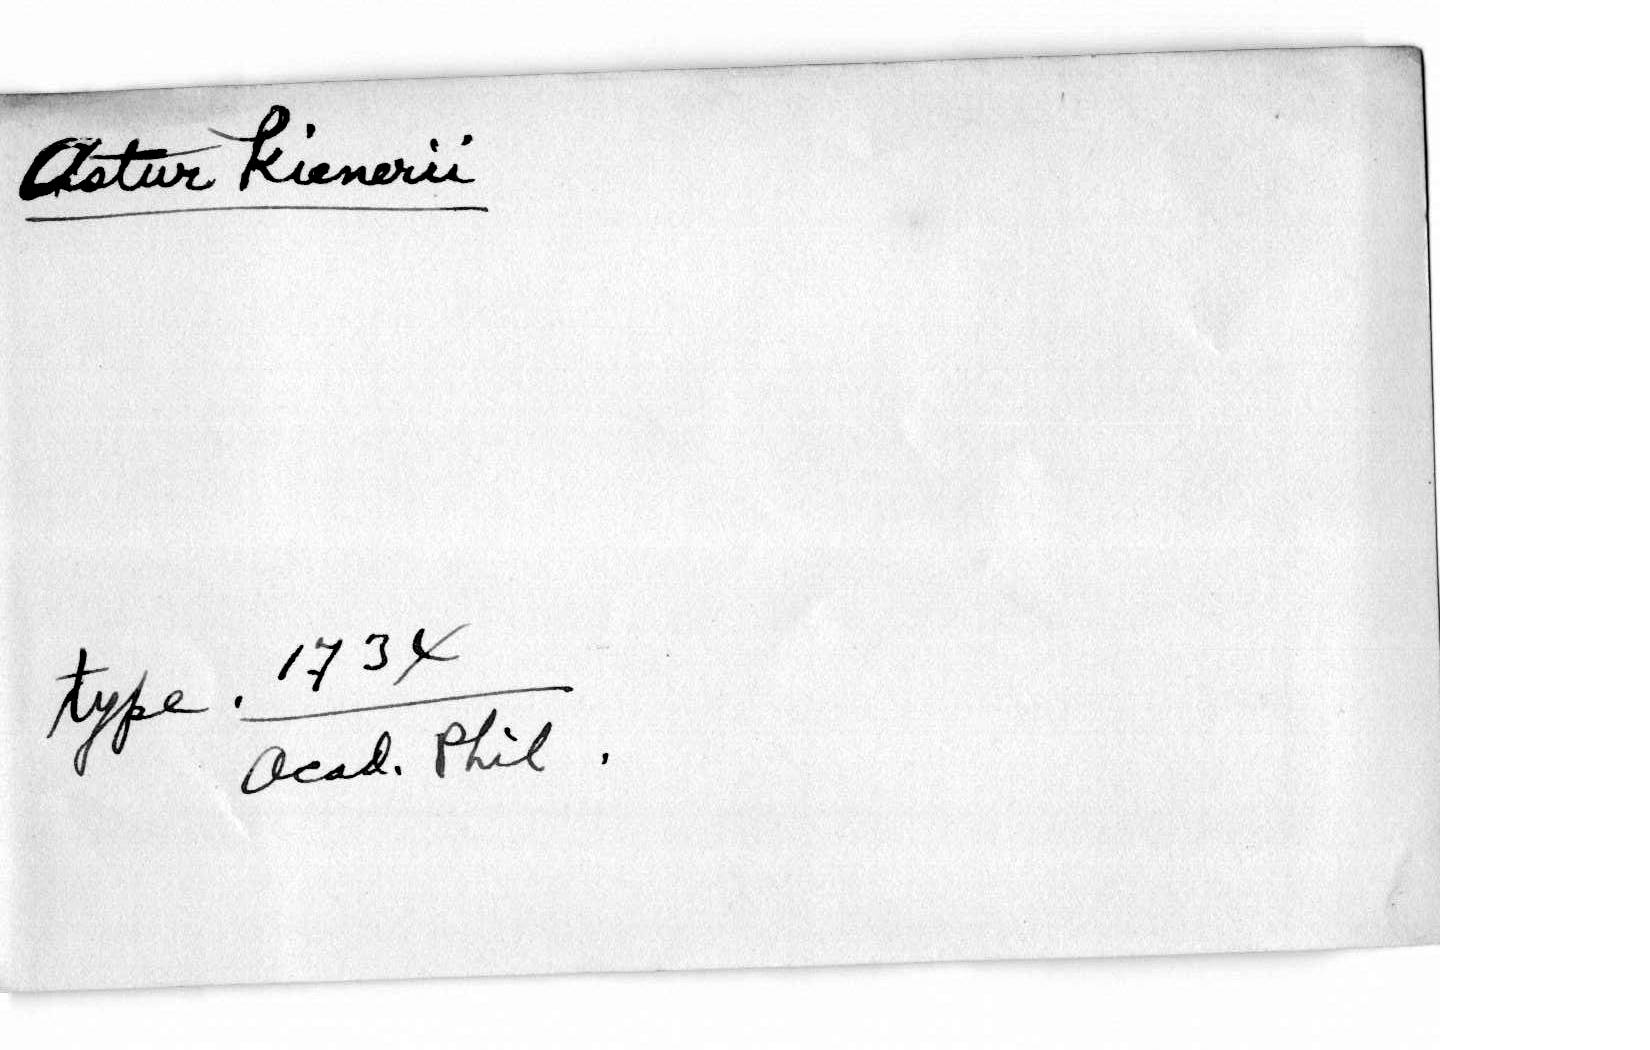 Astur Kienerii
type. 1734
Acad. Phil.